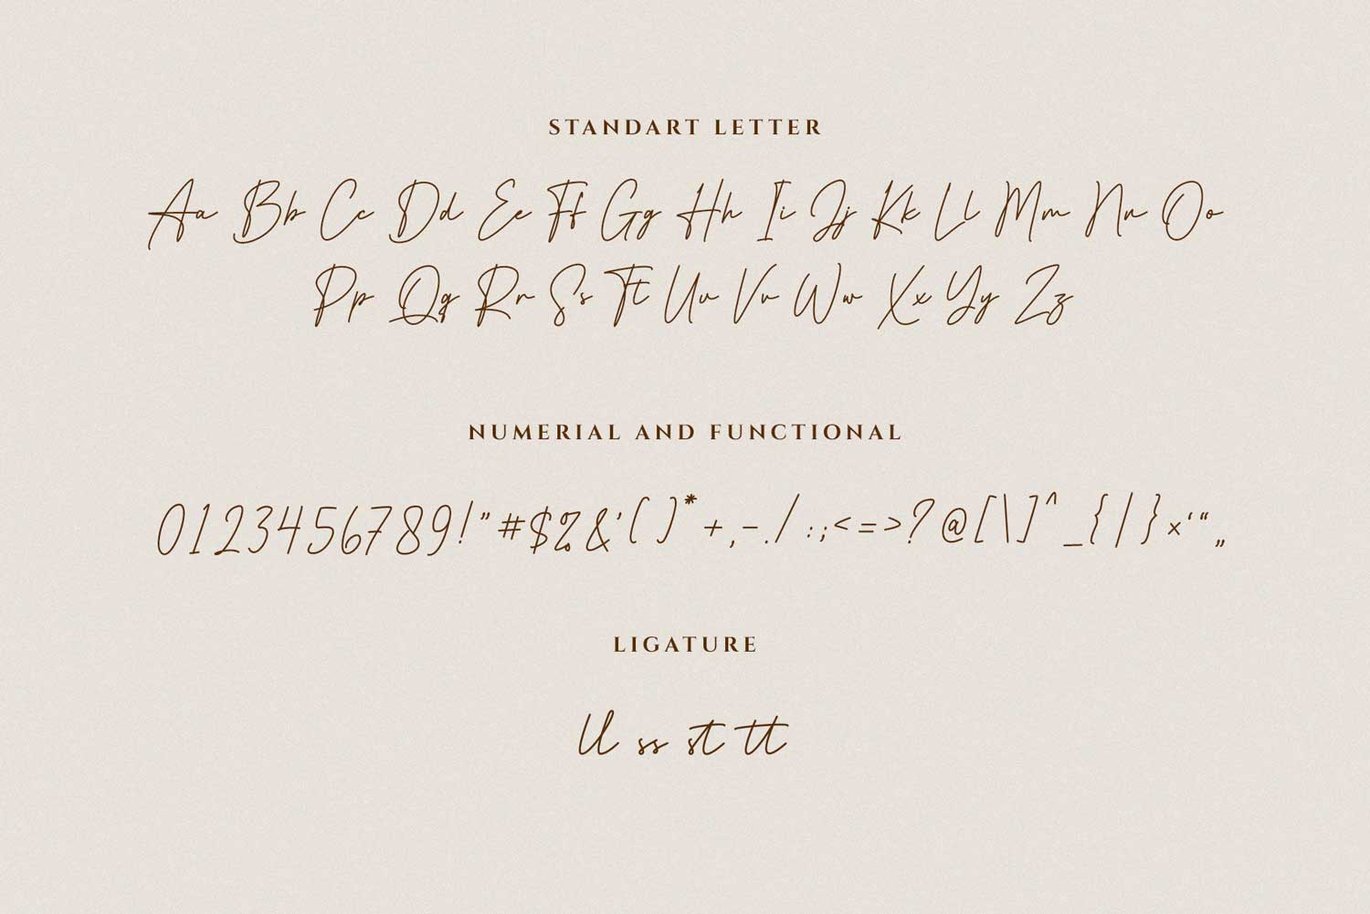 STANDART LETTER
Aa Bb Cc Dd Ee Ff Gg Hh Ii Jj Kk Ll Mm Nn Oo
Pp Qq Rr Ss Tt Uu Vv Ww Xx Yy Zz
NUMERIAL AND FUNCTIONAL
0123456789!"#$%&'()*+,-./:;<=>?@[\]^_{|}×‘“„
LIGATURE
ll ss st tt